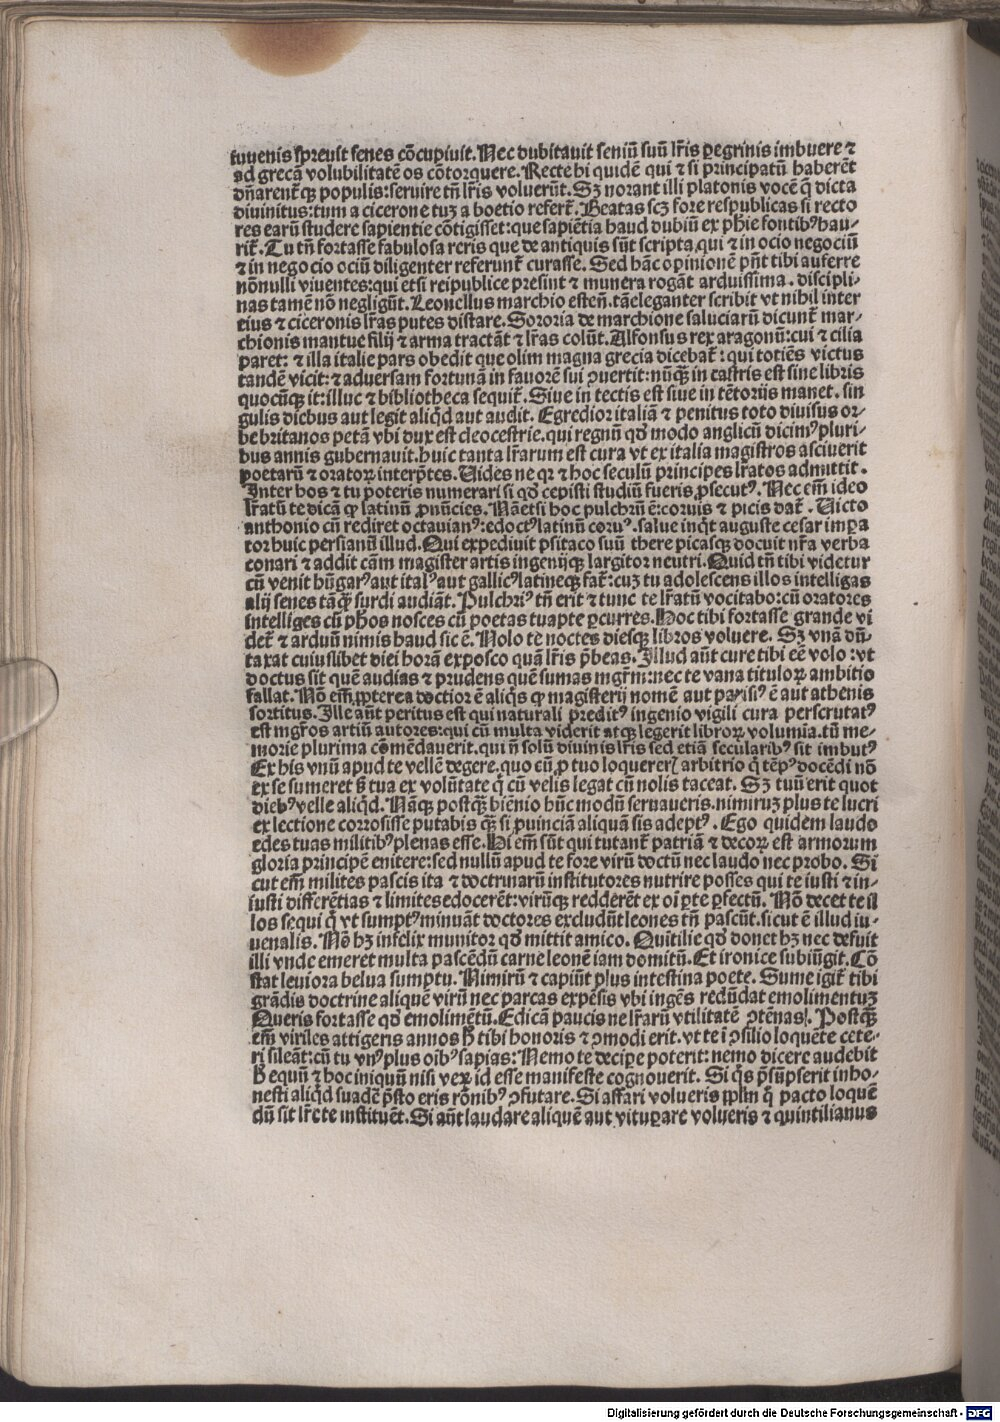 iuvenis spreuit senes cōcupiuit. Nec dubitauit seniū suū lr̄is ꝑegrinis imbuere ⁊
ad grecā volubilitatē os cōtorquere. Recte hi quidē qui ⁊ si principatū haberēt
dn̄arent᷑ qꝫ populis: seruire tn̄ lr̄is voluerūt. Sꝫ norant illi platonis vocē q̄ dicta
diuinitus: tum a cicerone tuꝫ a boetio refert᷑. Beatas scꝫ fore respublicas si recto
res earū studere sapientie cōtigisset: que sapiētia haud dubiū ex phīe fontibꝰ hau-
rit᷑. Tu tn̄ fortasse fabulosa reris que de antiquis sūt scripta, qui ⁊ in ocio negociū
⁊ in negocio ociū diligenter referunt᷑ curasse. Sed hāc opinionē pn̄t tibi auferre
nōnulli viuentes: qui etsi reipublice presint ⁊ munera rogāt arduissima. discipli-
nas tamē nō negligūt. Leonellus marchio esteñ. tāeleganter scribit vt nihil inter
eius ⁊ ciceronis lr̄as putes distare. Sororia de marchione saluciarū dicunt᷑ mar-
chionis mantue filij ⁊ arma tractāt ⁊ lr̄as colūt. Alfonsus rex aragonū: cui ⁊ cilia
paret: ⁊ illa italie pars obedit que olim magna grecia dicebat᷑: qui totiēs victus
tandē vicit: ⁊ aduersam fortunā in fauorē sui ꝯuertit: nūqꝫ in castris est sine libris
quocūqꝫ it: illuc ⁊ bibliotheca sequit᷑. Siue in tectis est siue in tētorijs manet. sin
gulis diebus aut legit aliqd aut audit. Egredior italiā ⁊ penitus toto diuisus or-
be britanos petā vbi dux est cleocestrie. qui regnū qd modo anglicū dicimꝰ pluri-
bus annis gubernauit. huic tanta lr̄arum est cura vt ex italia magistros asciuerit
poetarū ⁊ oratorꝝ interp̄tes. Uides ne qr ⁊ hoc seculū principes lr̄atos admittit.
Inter hos ⁊ tu poteris numerari si qd cepisti studiū fueris ꝓsecutꝰ. Nec em̄ ideo
lr̄atū te dicā qꝫ latinū ꝓnūcies. Nā etsi hoc pulchrū ē: coruis ⁊ picis dat᷑. Uicto
anthonio cū rediret octauianꝰ: edoctꝰ latinū coruꝰ. salue inqt auguste cesar imꝑa
tor huic persianū illud. Qui expediuit psitaco suū there picasqꝫ docuit nr̄a verba
conari ⁊ addit cām magister artis ingenijqꝫ largitor neutri. Quid tn̄ tibi videtur
cū venit hūgarꝰ aut italꝰ aut gallicꝰ latineqꝫ fat᷑: cuꝫ tu adolescens illos intelligas
alij senes tāqꝫ surdi audiāt. Pulchriꝰ tn̄ erit ⁊ tunc te lr̄atū vocitabo: cū oratores
intelliges cū ph̄os nosces cū poetas tuapte ꝑcurres. Hoc tibi fortasse grande vi
det᷑ ⁊ arduū nimis haud sic ē. Nolo te noctes diesqꝫ libros voluere. Sꝫ vnā dū-
taxat cuiuslibet diei horā exposco quā lr̄is p̄beas. Illud aūt cure tibi eē volo: vt
doctus sit quē audias ⁊ prudens quē sumas mgr̄m: nec te vana titulorꝝ ambitio
fallat. Nō em̄ ꝓpterea doctior ē aliqs qꝫ magisterij nomē aut parisiꝰ ē aut athenis
sortitus. Ille aūt peritus est qui naturali preditꝰ ingenio vigili cura perscrutatꝰ
est mgr̄os artiū autores: qui cū multa viderit atqꝫ legerit librorꝝ volumīa. tū me-
morie plurima cōmēdauerit. qui ñ solū diuinis lr̄is sed etiā secularibꝰ sit imbutꝰ
Ex his vnū apud te vellē degere. quo cū ꝓ tuo loquereris arbitrio q̄ tēpꝰ docēdi nō
ex se sumeret sꝫ tua ex volūtate q̄ cū velis legat cū nolis taceat. Sꝫ tuū erit quot
diebꝰ velle aliqd. Nāqꝫ postqꝫ biēnio hūc modū seruaueris. nimiruꝫ plus te lucri
ex lectione corrosisse putabis qꝫ si ꝓuinciā aliquā sis adeptꝰ. Ego quidem laudo
edes tuas militibꝰ plenas esse. Hi em̄ sūt qui tutant᷑ patriā ⁊ decorꝝ est armorum
gloria principē enitere: sed nullū apud te fore virū doctū nec laudo nec probo. Si
cut em̄ milites pascis ita ⁊ doctrinarū institutores nutrire posses qui te iusti ⁊ in-
iusti differētias ⁊ limites edocerēt: virūqꝫ redderēt ex oī ꝑte ꝑfectū. Nō decet te il
los sequi q̄ vt sumptꝰ minuāt doctores excludūt leones tn̄ pascūt. sicut ē illud iu-
uenalis. Nō hꝫ infelix munitor qd mittit amico. Quitilie qd donet hꝫ nec defuit
illi vnde emeret multa pascēdū carne leonē iam domitū. Et ironice subiūgit. Cō
stat leuiora belua sumptu. Nimirū ⁊ capiūt plus intestina poete. Sume igit᷑ tibi
grādis doctrine aliquē virū nec parcas expēsis vbi ingēs redūdat emolimentuꝫ
Queris fortasse qd emolimētū. Edicā paucis ne lr̄arū vtilitatē ꝯtēnas. Postqꝫ
em̄ viriles attigeris annos h̄ tibi honoris ⁊ ꝯmodi erit. vt te ī ꝯsilio loquēte cete-
ri sileāt: cū tu vnꝰ plus oībꝰ sapias: Nemo te decipe poterit: nemo dicere audebit
h̄ equū ⁊ hoc iniquū nisi verꝝ id esse manifeste cognouerit. Si qs p̄supserit inho-
nesti aliqd suadē p̄sto eris rōnibꝰ ꝯfutare. Si affari volueris ppl̄m q̄ pacto loquē
dū sit lr̄e te instituēt. Si aūt laudare aliquē aut vituꝑare volueris ⁊ quintilianus
Digitalisierung gefördert durch die Deutsche Forschungsgemeinschaft - DFG